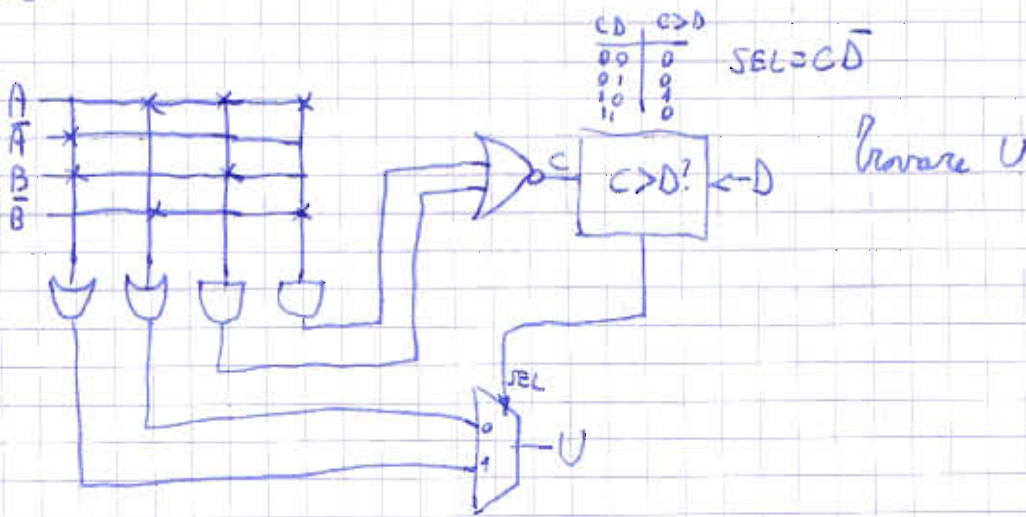 CD | C>D
00 | 0
01 | 0
10 | 1
11 | 0
SEL=CD̅
Trovare U
A
A̅
B
B̅
C
C>D?
D
SEL
0
1
U